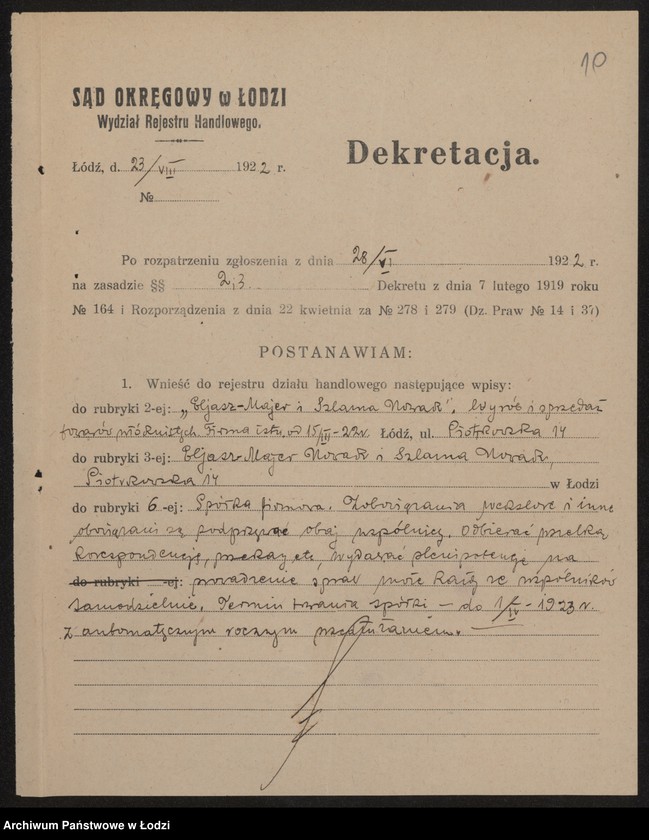 10
SĄD OKRĘGOWY w ŁODZI
Wydział Rejestru Handlowego.
Dekretacja.
Łódź, d. 23/VIII 1922 r.
№
Po rozpatrzeniu zgłoszenia z dnia 28/VI 1922 r.
na zasadzie §§ 2, 3. Dekretu z dnia 7 lutego 1919 roku
№ 164 i Rozporządzenia z dnia 22 kwietnia za № 278 i 279 (Dz. Praw № 14 i 37)
POSTANAWIAM:
1. Wnieść do rejestru działu handlowego następujące wpisy:
do rubryki 2-ej: „Eljasz-Majer i Szlama Nowak". Wyrób i sprzedaż
towarów włóknistych. Firma istn. od 15/III-22 r. Łódź, ul. Piotrkowska 14
do rubryki 3-ej: Eljasz-Majer Nowak i Szlama Nowak,
Piotrkowska 14 w Łodzi
do rubryki 6-ej: Spółka firmowa. Zobowiązania wekslowe i inne
obowiązani są podpisywać obaj wspólnicy. Odbierać wszelką
korespondencję, przekazy etc, wydawać plenipotencję na
do rubryki -ej: prowadzenie spraw może każdy ze wspólników
samodzielnie. Termin trwania spółki – do 1/IV - 1923 r.
z automatycznym rocznym
Archiwum Państwowe w Łodzi